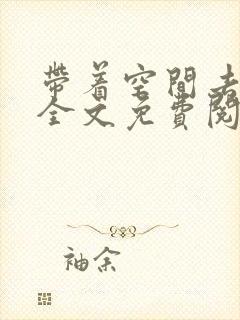 帶着空間去
全文免費閱
袖余